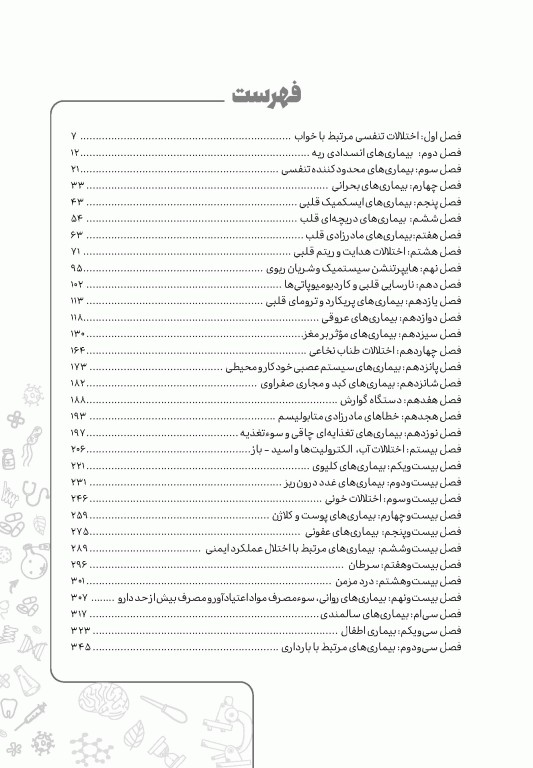 فهرست
فصل اول: اختلالات تنفسی مرتبط با خواب ۷
فصل دوم: بیماری‌های انسدادی ریه ۱۲
فصل سوم: بیماری‌های محدودکننده تنفسی ۲۱
فصل چهارم: بیماری‌های بحرانی ۳۳
فصل پنجم: بیماری‌های ایسکمیک قلبی ۴۳
فصل ششم: بیماری‌های دریچه‌ای قلب ۵۴
فصل هفتم: بیماری‌های مادرزادی قلب ۶۳
فصل هشتم: اختلالات هدایت و ریتم قلبی ۷۱
فصل نهم: هایپرتنشن سیستمیک و شریان ریوی ۹۵
فصل دهم: نارسایی قلبی و کاردیومیوپاتی‌ها ۱۰۲
فصل یازدهم: بیماری‌های پریکارد و ترومای قلبی ۱۱۳
فصل دوازدهم: بیماری‌های عروقی ۱۱۸
فصل سیزدهم: بیماری‌های مؤثر بر مغز ۱۳۰
فصل چهاردهم: اختلالات طناب نخاعی ۱۶۴
فصل پانزدهم: بیماری‌های سیستم عصبی خودکار و محیطی ۱۷۳
فصل شانزدهم: بیماری‌های کبد و مجاری صفراوی ۱۸۲
فصل هفدهم: دستگاه گوارش ۱۸۸
فصل هجدهم: خطاهای مادرزادی متابولیسم ۱۹۳
فصل نوزدهم: بیماری‌های تغذیه‌ای چاقی و سوءتغذیه ۱۹۷
فصل بیستم: اختلالات آب، الکترولیت‌ها و اسید - باز ۲۰۶
فصل بیست‌ویکم: بیماری‌های کلیوی ۲۲۱
فصل بیست‌ودوم: بیماری‌های غدد درون‌ریز ۲۳۱
فصل بیست‌وسوم: اختلالات خونی ۲۴۶
فصل بیست‌وچهارم: بیماری‌های پوست و کلاژن ۲۵۹
فصل بیست‌وپنجم: بیماری‌های عفونی ۲۷۵
فصل بیست‌وششم: بیماری‌های مرتبط با اختلال عملکرد ایمنی ۲۸۹
فصل بیست‌وهفتم: سرطان ۲۹۶
فصل بیست‌وهشتم: درد مزمن ۳۰۱
فصل بیست‌ونهم: بیماری‌های روانی، سوءمصرف مواد اعتیادآور و مصرف بیش از حد دارو ۳۰۷
فصل سی‌ام: بیماری‌های سالمندی ۳۱۷
فصل سی‌ویکم: بیماری اطفال ۳۲۳
فصل سی‌ودوم: بیماری‌های مرتبط با بارداری ۳۴۵